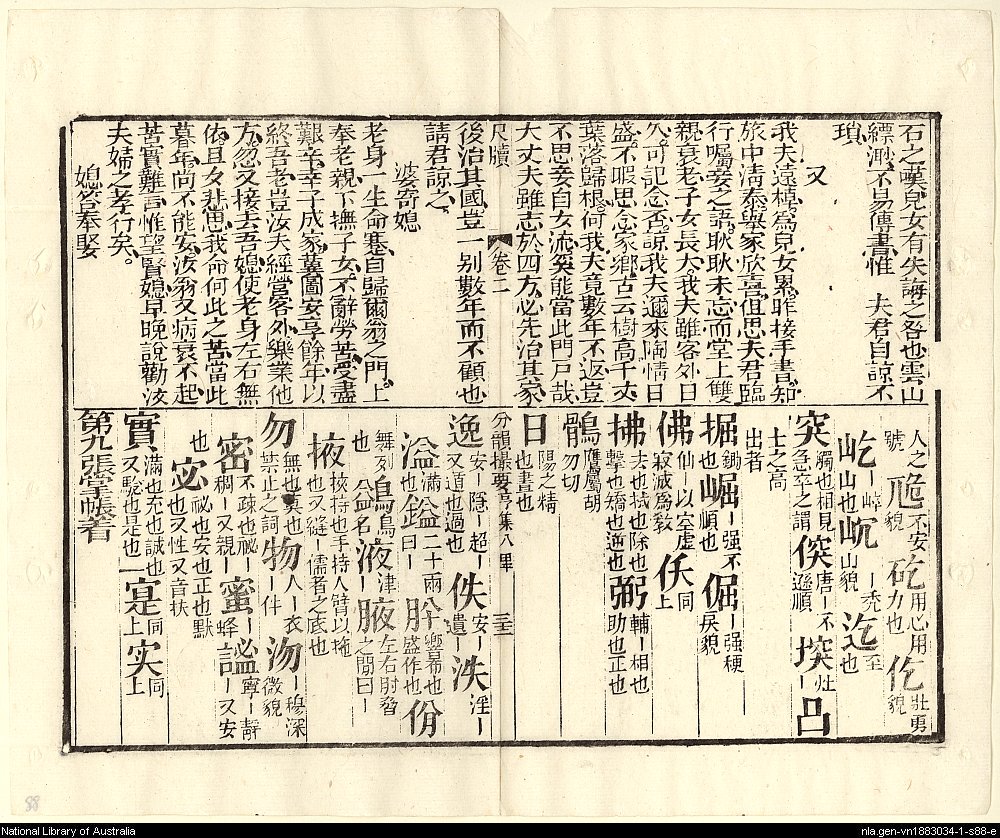 石之嘆兒女有失誨之咎也雲山
縹渺不易傳書惟 夫君自諒不
瑣
又
我夫遠棹為兒女累昨接手書知
旅中清泰舉家欣喜但思夫君臨
行囑妾之語耿耿未忘而堂上雙
親衰老子女長大我夫雖客外日
久可記念否諒我夫邇來陶情日
盛不暇思念家鄉古云樹高千丈
葉落歸根何我夫竟數年不返豈
不思妾自女流奚能當此門戶哉
大丈夫雖志於四方必先治其家
尺牘 卷二
後治其國豈一別數年而不顧也
請君諒之
婆寄媳
老身一生命蹇自歸爾翁之門上
奉老親下撫子女不辭勞苦受盡
艱辛幸子成家冀圖安享餘年以
終吾老豈汝夫經營客外樂業他
方忽又接去吾媳使老身左右無
依旦夕悲思我命何此之苦當此
暮年尚不能安汝翁又病衰不起
苦實難言惟望賢媳早晚說勸汝
夫婦之孝行矣
媳答奉娶
人之 卼不安 矻用心用 仡壯勇
號 貌 力也 貌
屹ー峙 㞵ー禿 迄至
山也 山貌 也
突觸也相見 傏唐ー不 堗ー灶 凸
急卒之謂 遜順
士之高
出者
掘鋤ー 崛ー强不 倔ー强梗
也 順也 戾貌
佛仙ー以空虛 仸同
寂滅為教 上
拂去也拭也除也 弼輔ー相也
擊也矯也逆也 助也正也
鶻鷹屬胡
勿切
日陽之精
也書也
分韻撮要 亨集八畢 三十
逸安ー隱ー超ー 佚安ー 泆淫ー
又遁也過也 遺ー
溢滿 鎰二十兩 肸響布也 佾
也 曰ー 盛作也
舞列 鳦鳥 液津 腋左右肘脅
也 名 ー 之間曰ー
掖挾持也手持人臂以掩
也又縫ー儒者之底也
勿無也莫也 物人ー衣 沕ー穆深
禁止之詞 ー件 微貌
密不疎也祕ー 蜜ー 謐寧ー靜
稠ー又親ー 蜂 ー又安
也 宓祕也安也正也默
也又性又音扶
實滿也充也誠也 寔同 实同
又驗也是也一 上 上
第九張學帳着
National Library of Australia
nla.gen-vn1883034-1-s88-e
88